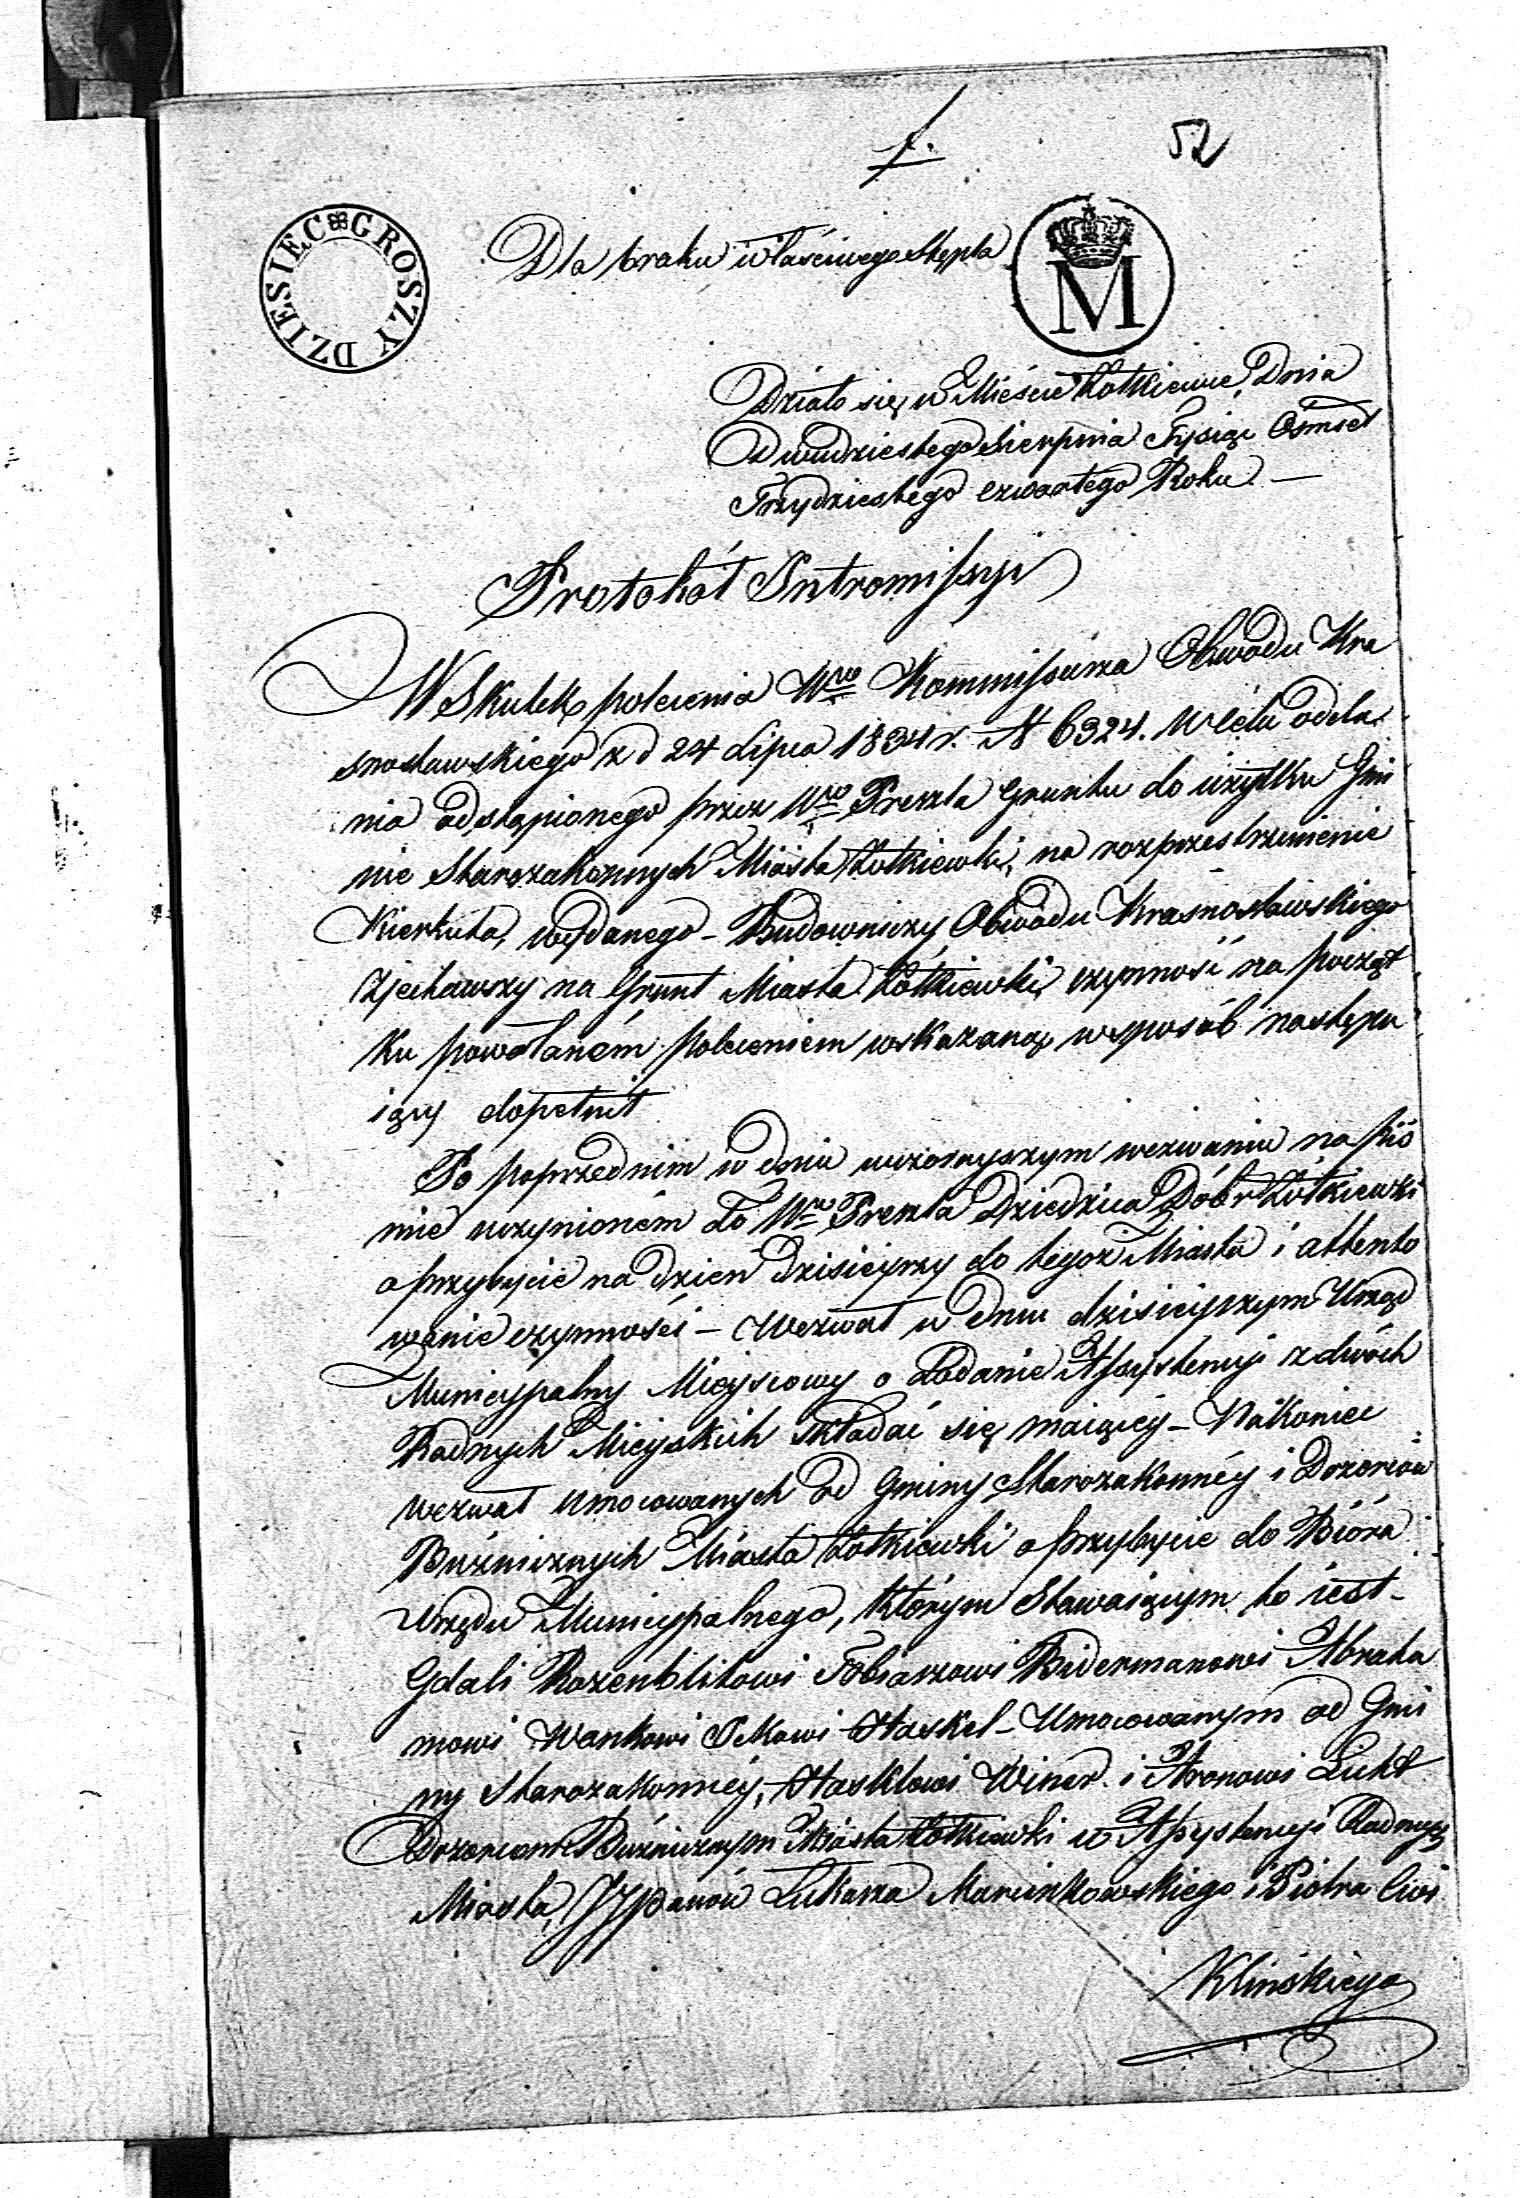 f. 52
DZIESIEC GROSZY
Dla braku właściwego Stępla
M
Działo się w Mieście Żołkiewce, Dnia
Dwudziestego Sierpnia Tysiąc Ośmset
Trzydziestego czwartego Roku. —
Protokół Intromissyi
W Skutek polecenia Wgo Kommissarza Obwodu Kra
snostawskiego z d 24 Lipca 1834 r. N 6324. w Celu odda
nia odstąpionego przez Wgo Preszla Gruntu do użytku Gmi
nie Starozakonnych Miasta Żołkiewki, na rozprzestrzenienie
Kierkuta, wydanego – Budowniczy Obwodu Krasnostawskiego
Zjechawszy na Grunt Miasta Żółkiewki, czynność na począt
ku powołaném poleceniem wskazaną w sposób następu
iący dopełnił
Po poprzednim w dniu wczorayszym wezwaniu na piś
mie uczynioném do Wgo Preszla Dziedzica Dóbr Żółkiewki
o przybycie na dzień dzisieyszy do tegoż Miasta i attento
wanie czynności – Wezwał w dniu dzisieyszym Urząd
Municypalny Mieyscowy o dodanie Assystencyi z dwóch
Radnych Mieyskich składać się maiącey – Nakoniec
wezwał umocowanych od Gminy Starozakonnéy i Dozorców
Bużnicznych Miasta Żołkiewki o przybycie do Bióra
Urzędu Municypalnego, którym Stawaiącym to iest –
Gdali Rozenblitowi Tobiaszowi Bidermanowi Abraha
mowi Wankowi Ickowi Haskel – Umocowanym od Gmi
ny Starozakonnéy, Hasklowi Winer. i Aronowi Licht
Dozorcom Bużnicznym Miasta Żołkiewki w Assystencyi Radnych
Miasta, JJPanów Łukasza Marcinkowskiego i Piotra Ćwi
Klińskiego